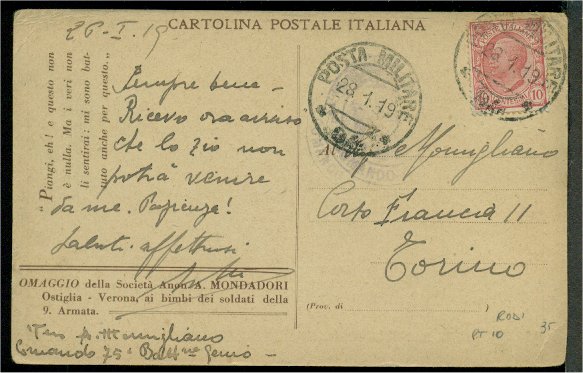 CARTOLINA POSTALE ITALIANA
26-I-19
"Piongi, eh! e questo non
è nulla. Ma i veri non
li sentirai: mi sono bat-
tuto anche per questo..."
Sempre bene -
Ricevo ora avviso
che lo zio non
potrà venire
da me. Pazienza!
Saluti affettuosi
OMAGGIO della Società Anon. A. MONDADORI
Ostiglia - Verona, ai bimbi dei soldati della
9. Armata.
Ten A. Momigliano
Comando 75° Batt.ne Genio -
POSTA MILITARE
28.1.19
POSTA MILITARE
28.1.19
10
Al
Momigliano
Corso Francia 11
Torino
(Prov. di )
RODI
PT 10
35